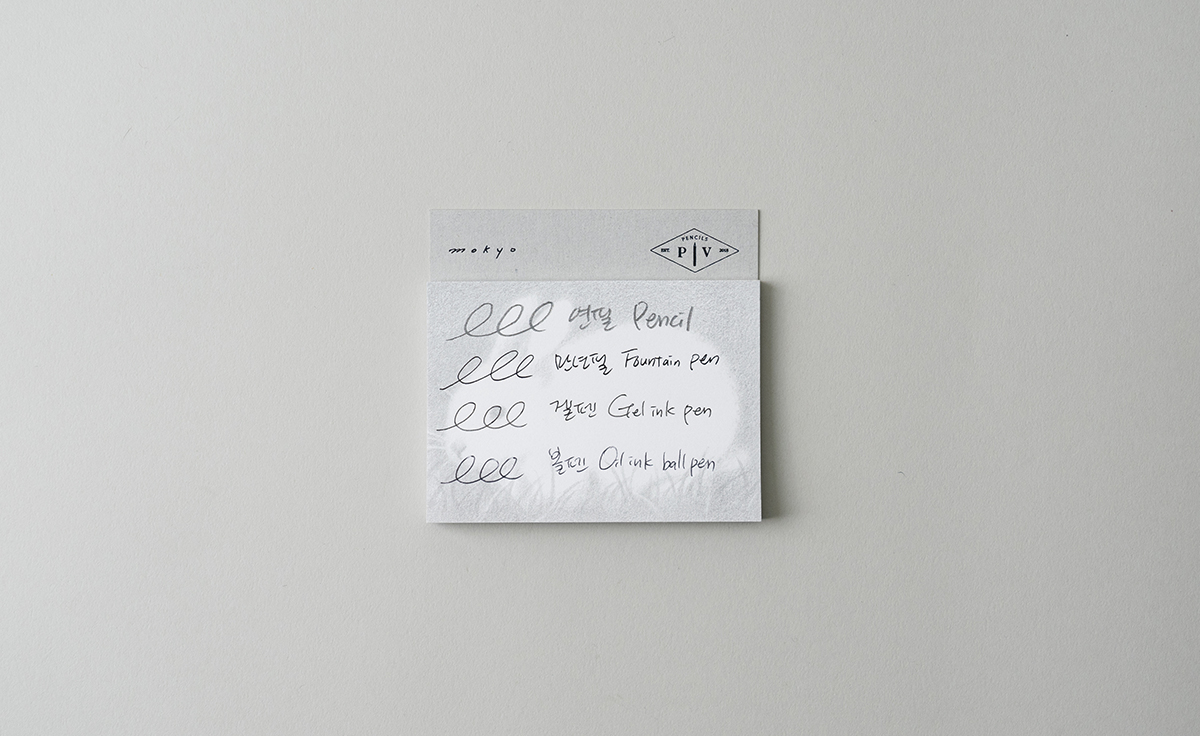 mokyo
PENCILS
EST. P V 2015
연필 Pencil
만년필 Fountain pen
겔펜 Gel ink pen
볼펜 Oil ink ball pen